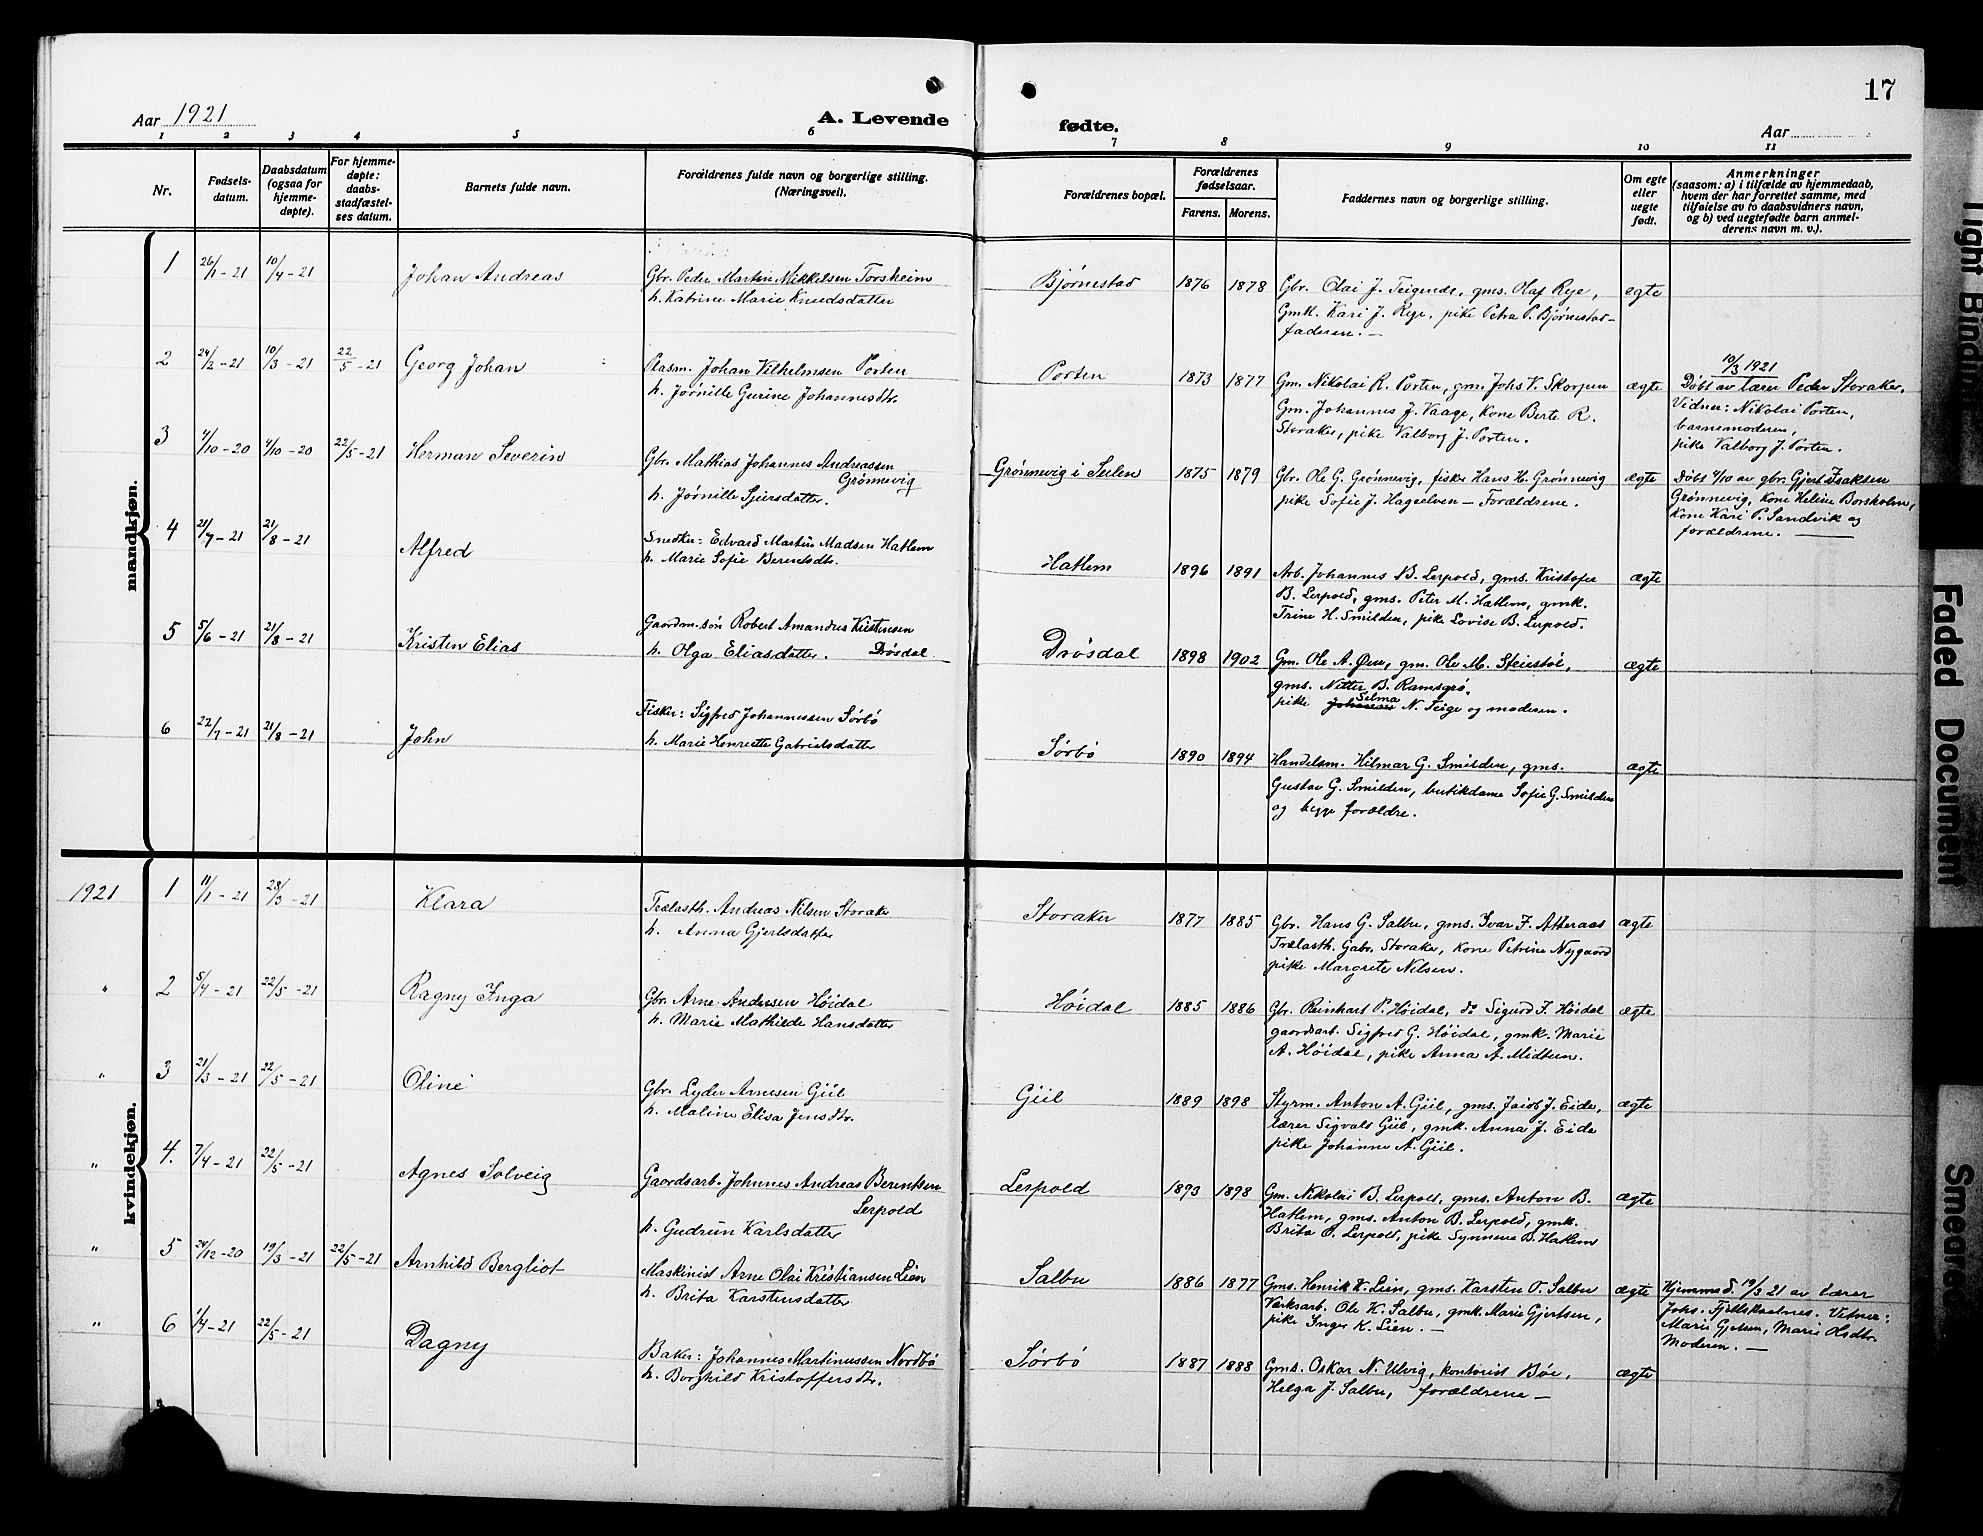 17
Aar 1921
A. Levende
fødte.
Aar
1 2 3 4 5 6 7 8 9 10 11
Nr.
Fødsels-
datum.
Daabsdatum
(ogsaa for
hjemme-
døpte).
For hjemme-
døpte:
daabs-
stadfæstel-
ses datum.
Barnets fulde navn.
Forældrenes fulde navn og borgerlige stilling.
(Næringsvei).
Forældrenes bopæl.
Forældrenes
fødselsaar.
Farens. Morens.
Faddernes navn og borgerlige stilling.
Om egte
eller
uegte
født.
Anmerkninger
(saasom: a) i tilfælde av hjemmedaab,
hvem der har forrettet samme, med
tilføielse av to daabsvidners navn,
og b) ved uegtefødte barn anmel-
derens navn m. v.).
mandkjøn.
1 26/1-21 10/4-21 Johan Andreas
Gbr. Peder Martin Mikkelsen Torsheim
h. Katrine Marie Knudsdatter
Bjørnestad 1876 1878
Gbr. Olai J. Teigende, gms. Olaf Reje,
Gmk. Kari J. Reje, pike Petra P. Bjørnestad-
faderen. —
egte
2 24/2-21 10/3-21 22/5-21 Georg Johan
Plasm. Johan Vilhelmsen Porten
h. Jørnille Gurine Johannesdtr.
Porten 1873 1877
Gm. Nikolai R. Porten, gm. Johs V. Skorpen
Gm. Johannes J. Vaage, kone Berte R.
Storaker, pike Valborg J. Porten.
ægte
10/3 1921
Døbt av lærer Peder Storaker.
Vidner: Nikolai Porten,
barnemoderen,
pike Valborg J. Porten.
3 4/10-20 4/10-20 22/5-21 Herman Severin
Gbr. Mathias Johannes Andreassen
Grønnevig
h. Jørnille Sjursdatter.
Grønnevig i Sulen 1875 1879
Gbr. Ole G. Grønnevig, fisker Hans H. Grønnevig
pike Sofie J. Hagelven — Forældrene.
ægte
Døbt 4/10 av gbr. Gjert Isaksen
Grønnevig, kone Heline Borsholm,
Kone Kari P. Sandvik og
forældrene. —
4 21/7-21 21/8-21 Alfred
Snedker: Edvard Martin Madsen Hatlem
h. Marie Sofie Berentsdtr.
Hatlem 1896 1891
Arb. Johannes B. Lerpold, gms. Kristofer
B. Lerpold, gms. Peter M. Hatlem, gmk.
Trine H. Smilden, pike Lovise B. Lerpold.
ægte
5 5/6-21 21/8-21 Kristen Elias
Gaardm.søn Robert Amandus Kristensen
h. Olga Eliasdatter. Drøsdal
Drøsdal 1898 1902
Gm. Ole A. Øen, gm. Ole M. Steiestøl,
gms. Nitter B. Ramsgrø.
Selma
pike N. Teige og moderen.
ægte
6 22/7-21 21/8-21 John
Fisker: Sigfred Johannessen Sørbø
h. Marie Henriette Gabrielsdatter
Sørbø 1890 1894
Handelsm. Hilmar G. Smilden, gms.
Gustav G. Smilden, butikdame Sofie G. Smilden
og begge forældre.
ægte
kvindekjøn.
1921 1 11/1-21 28/3-21 Klara
Trælasth. Andreas Nilsen Storaker
h. Anna Gjertsdatter
Storaker 1877 1885
Gbr. Hans G. Salbu, gms. Ivar F. Atteraas
Trælasth. Gabr. Storaker, kone Petrine Nygaard
pike Margrete Nilsen.
ægte
" 2 5/4-21 22/5-21 Ragny Inga
Gbr. Arne Andersen Høidal
h. Marie Mathilde Hansdatter
Høidal 1885 1886
Gbr. Reinhart P. Høidal, do Sigurd F. Høidal
gaardsarb. Sigfred G. Høidal, gmk. Marie
A. Høidal, pike Anna A. Midtun.
ægte
" 3 21/3-21 22/5-21 Oline
Gbr. Lyder Arnesen Giil
h. Maline Elisa Jensdtr.
Giil 1889 1898
Styrm. Anton A. Giil, gms. Jacob J. Eide,
lærer Sigvald Giil, gmk. Anna J. Eide
pike Johanne A. Giil.
ægte
" 4. 7/4-21 22/5-21 Agnes Solveig
Gaardsarb. Johnnes Andreas Berentsen
Lerpold
h. Gudrun Karlsdatter
Lerpold 1893 1898
Gm. Nikolai B. Lerpold, gms. Anton B.
Hatlem, gms. Anton B. Lerpold, gmk.
Brita O. Lerpold, pike Synneva B. Hatlem
ægte
" 5 24/12-20 19/3-21 22/5-21 Arnhild Bergliot
Maskinist Arne Olai Kristiansen Lien
h. Brita Karstensdatter
Salbu 1886 1877
Gms. Henrik K. Lien, gms. Karsten O. Salbu
Værksarb. Ole K. Salbu, gmk. Marie Gjertsen,
pike Inger K. Lien. —
ægte
Hjemmed. 19/3 21 av lærer
Johs. Vitner:
Marie Gjetsen, Marie
Moderen. —
" 6 1/4-21 22/5-21 Dagny
Baker: Johannes Martinussen Nordbø
h. Borghild Kristoffersdtr.
Sørbø 1887 1888
Gms. Oskar N. Ulvig, kontorist Bøe,
Helga J. Salbu, forældrene —
ægte
Tight Binding
Faded Document
Smeared